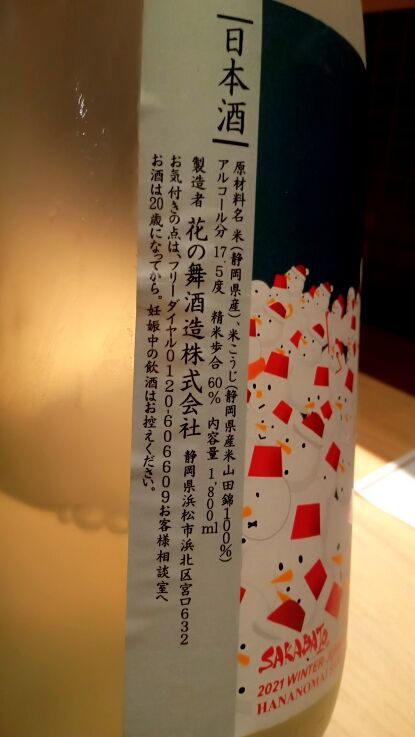 日本酒
原材料名 米(静岡県産) 米こうじ(静岡県産米山田錦100%)
アルコール分 17.5度 精米歩合 60% 内容量 1,800ml
製造者 花の舞酒造株式会社 静岡県浜松市浜北区宮口632
お気付きの点は、フリーダイヤル0120-606609お客様相談室へ
お酒は20歳になってから。妊娠中の飲酒はお控えください。
SAKABATO
2021 WINTER
HANANOMAI